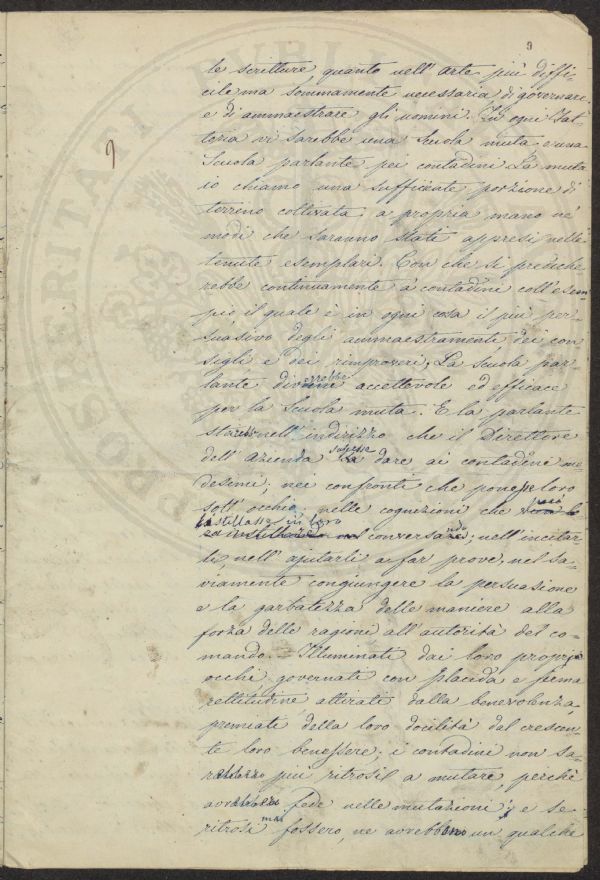 9
9
le scritture, quanto nell'Arte più diffi-
cile ma sommamente necessaria di governare,
e di ammaestrare gli uomini. In ogni Fat-
toria vi sarebbe una Scuola muta, e una
Scuola parlante pei contadini. La muta
io chiamo una sufficiente porzione di
terreno coltivata a propria mano ne'
modi che saranno stati appresi nelle
tenute esemplari. Con che si prediche-
rebbe continuamente a' contadini coll'esem-
pio il quale è in ogni cosa il più per-
suasivo degli ammaestramenti dei con-
sigli e dei rimproveri. La Scuola par-
lante diverrebbe accettevole ed efficace
per la Scuola muta. E la parlante
nell'indirizzo che il Direttore
dell'azienda sapesse dare ai contadini me-
desimi; nei confronti che ponesse loro
sott'occhio; nelle cognizioni che
instillasse in loro conversando; nell'incitar-
li, nell'ajutarli a far prove, nel sa-
viamente congiungere la persuasione
e la garbatezza delle maniere alla
forza delle ragioni all'autorità del co-
mando. Illuminati dai loro proprj
occhi, governati con placida e ferma
rettitudine attirati dalla benevolenza
premiati della loro docilità dal crescen-
te loro benessere; i contadini non sa-
più ritrosi a mutare, perchè
fede nelle mutazioni; e se
ritrosi mai fossero, ne avrebbero un qualche